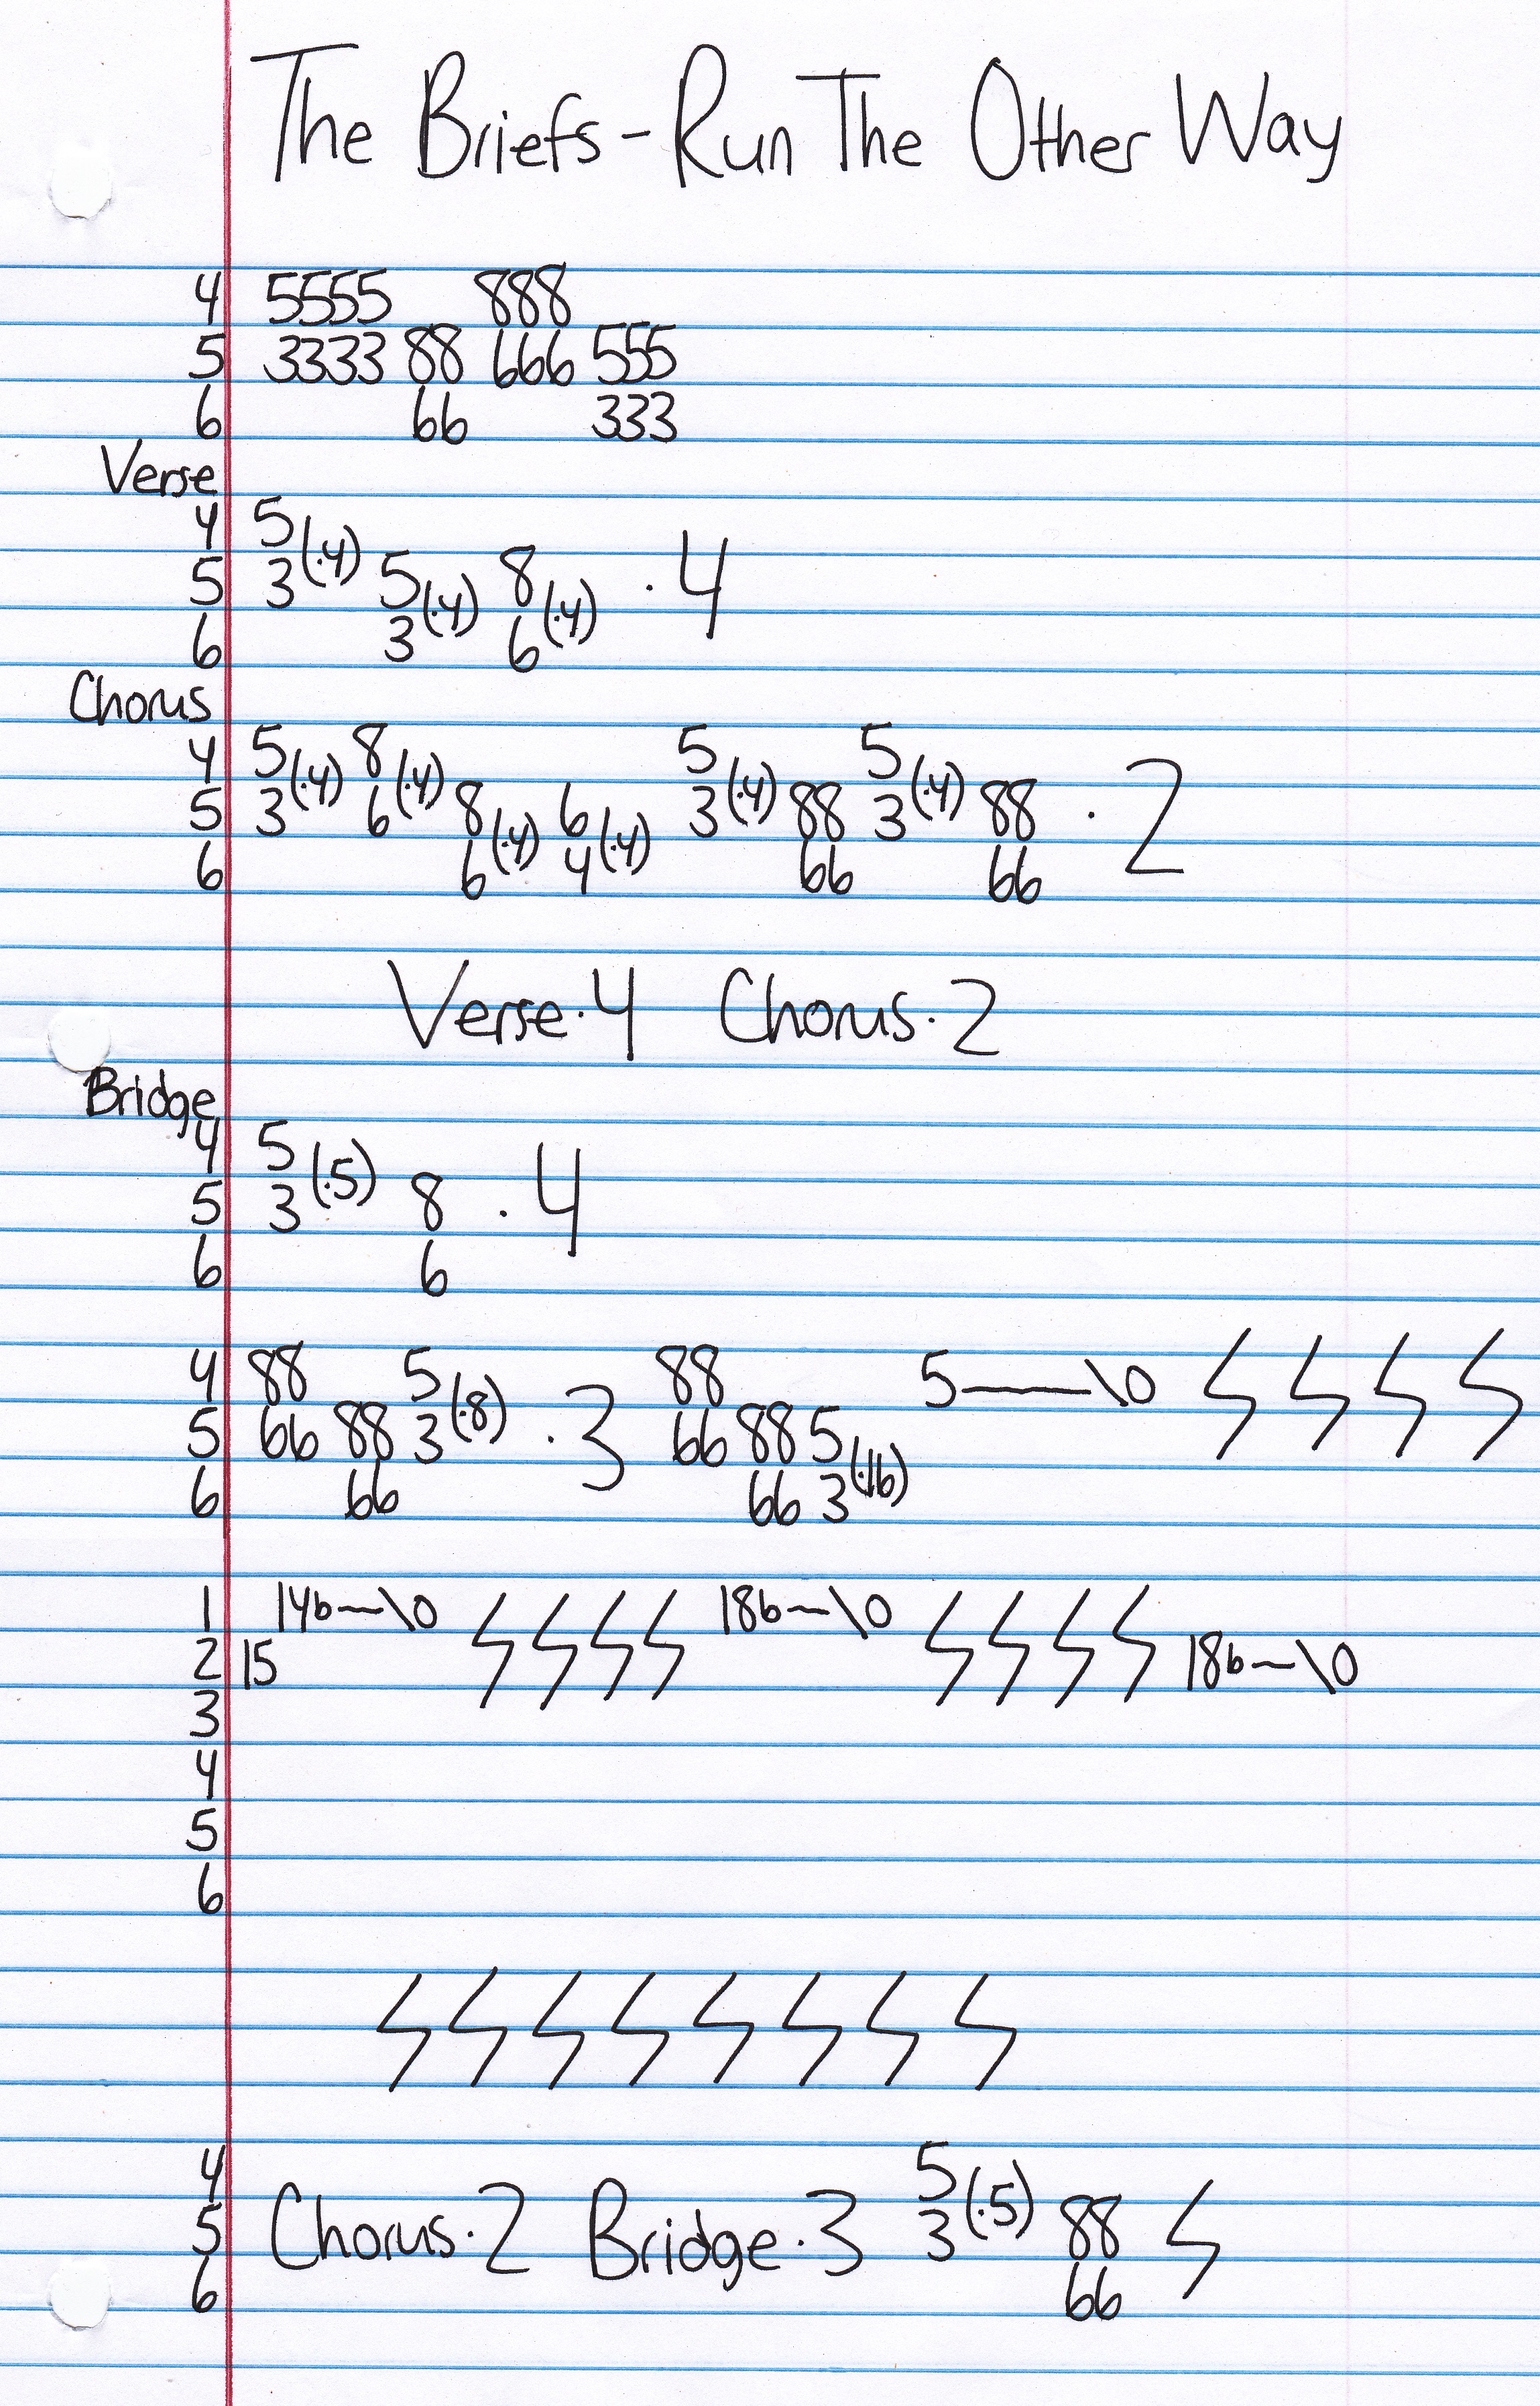 The Briefs - Run The Other Way
4 5555 888
5 3333 88 666 555
6 66 333
Verse
4 5
5 3(·4) 5 8 · 4
6 3(·4) 6(·4)
Chorus
4 5 8 5 5
5 3(·4) 6(·4) 8 6 3(·4) 88 3(·4) 88 · 2
6 6(·4) 4(·4) 66 66
Verse·4 Chorus·2
Bridge
4 5
5 3(·5) 8 · 4
6 6
4 88 5 88 5—\0
5 66 88 3(·8) ·3 66 88 5
6 66 66 3(·16)
1 14b—\0 18b—\0
2 15 18b—\0
3
4
5
6
4 5
5 Chorus·2 Bridge·3 3(·5) 88
6 66